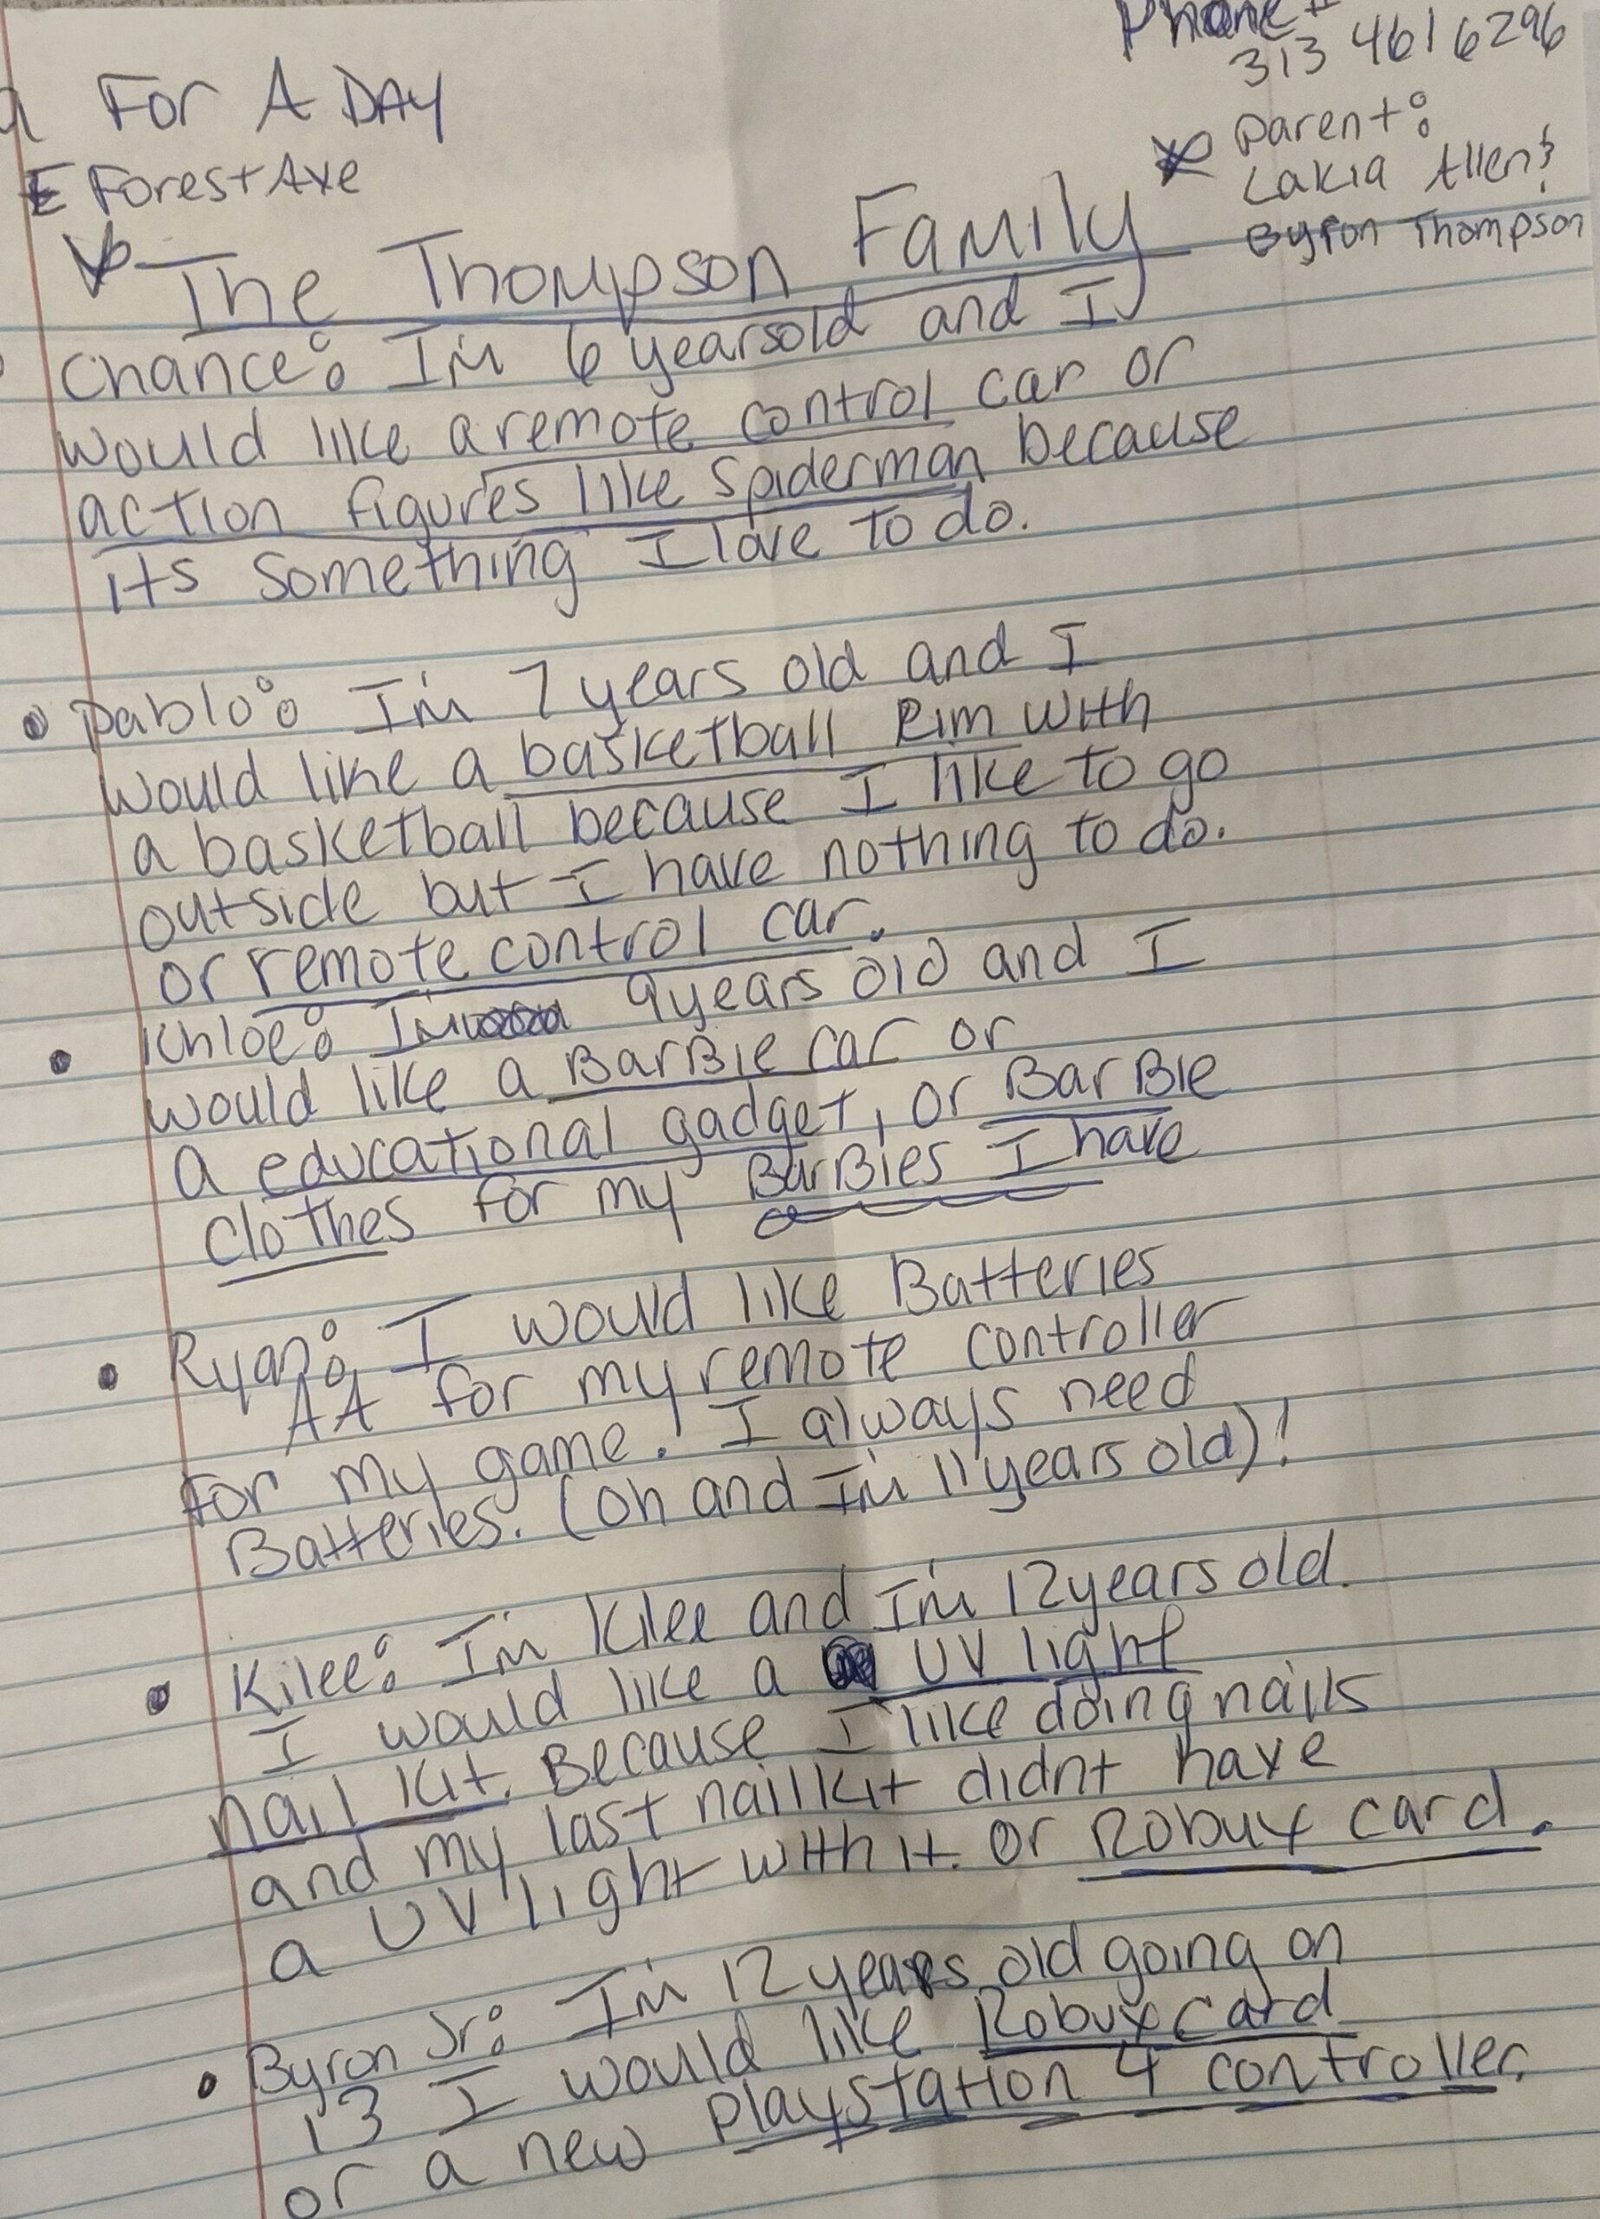 Phone #
313 461 6296
a For A DAY
parent:
Lakia Allen &
Byron Thompson
E Forest Ave
The Thompson Family
Chance: I'm 6 yearsold and I
would like a remote control car or
action figures like Spiderman because
its something I love to do.
Pablo: I'm 7 years old and I
would like a basketball Rim with
a basketball because I like to go
outside but I have nothing to do.
or remote control car.
Khloe: I'm 9years old and I
would like a BarBie car or
a educational gadget, or BarBie
clothes for my BarBies I have
Ryan: I would like Batteries
AA for my remote controller
for my game. I always need
Batteries. (oh and I'm 11 years old)!
Kilee: I'm Kilee and I'm 12years old.
I would like a UV light
nail kit. Because I like doing nails
and my last nail kit didnt have
a UV light with it. or Robux card.
Byron Jr: I'm 12 years old going on
13 I would like Robux card
or a new playstation 4 controller.